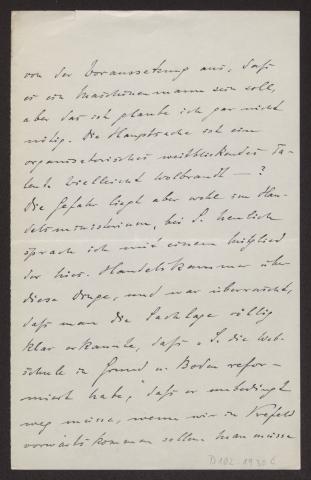 von der Voraussetzung aus, daß
es ein Maschinenmann sein soll,
aber das ist glaube ich gar nicht
nötig. Die Hauptsache ist ein
organisatorisches weitblickendes Ta-
lent. Vielleicht Wolbrandt — ?
Die Gefahr liegt aber wohl im Han-
delsministerium, bei S. Neulich
sprach ich mit einem Mitglied
der hies. Handelskammer über
diese Dinge, und war überrascht,
daß man die Sachlage völlig
klar erkannte, daß „S. die Web-
schule in Grund u. Boden refor-
miert habe," daß er unbedingt
weg müsse, wenn wir in Krefeld
vorwärts kommen sollen. Man müsse
D102 1930 c